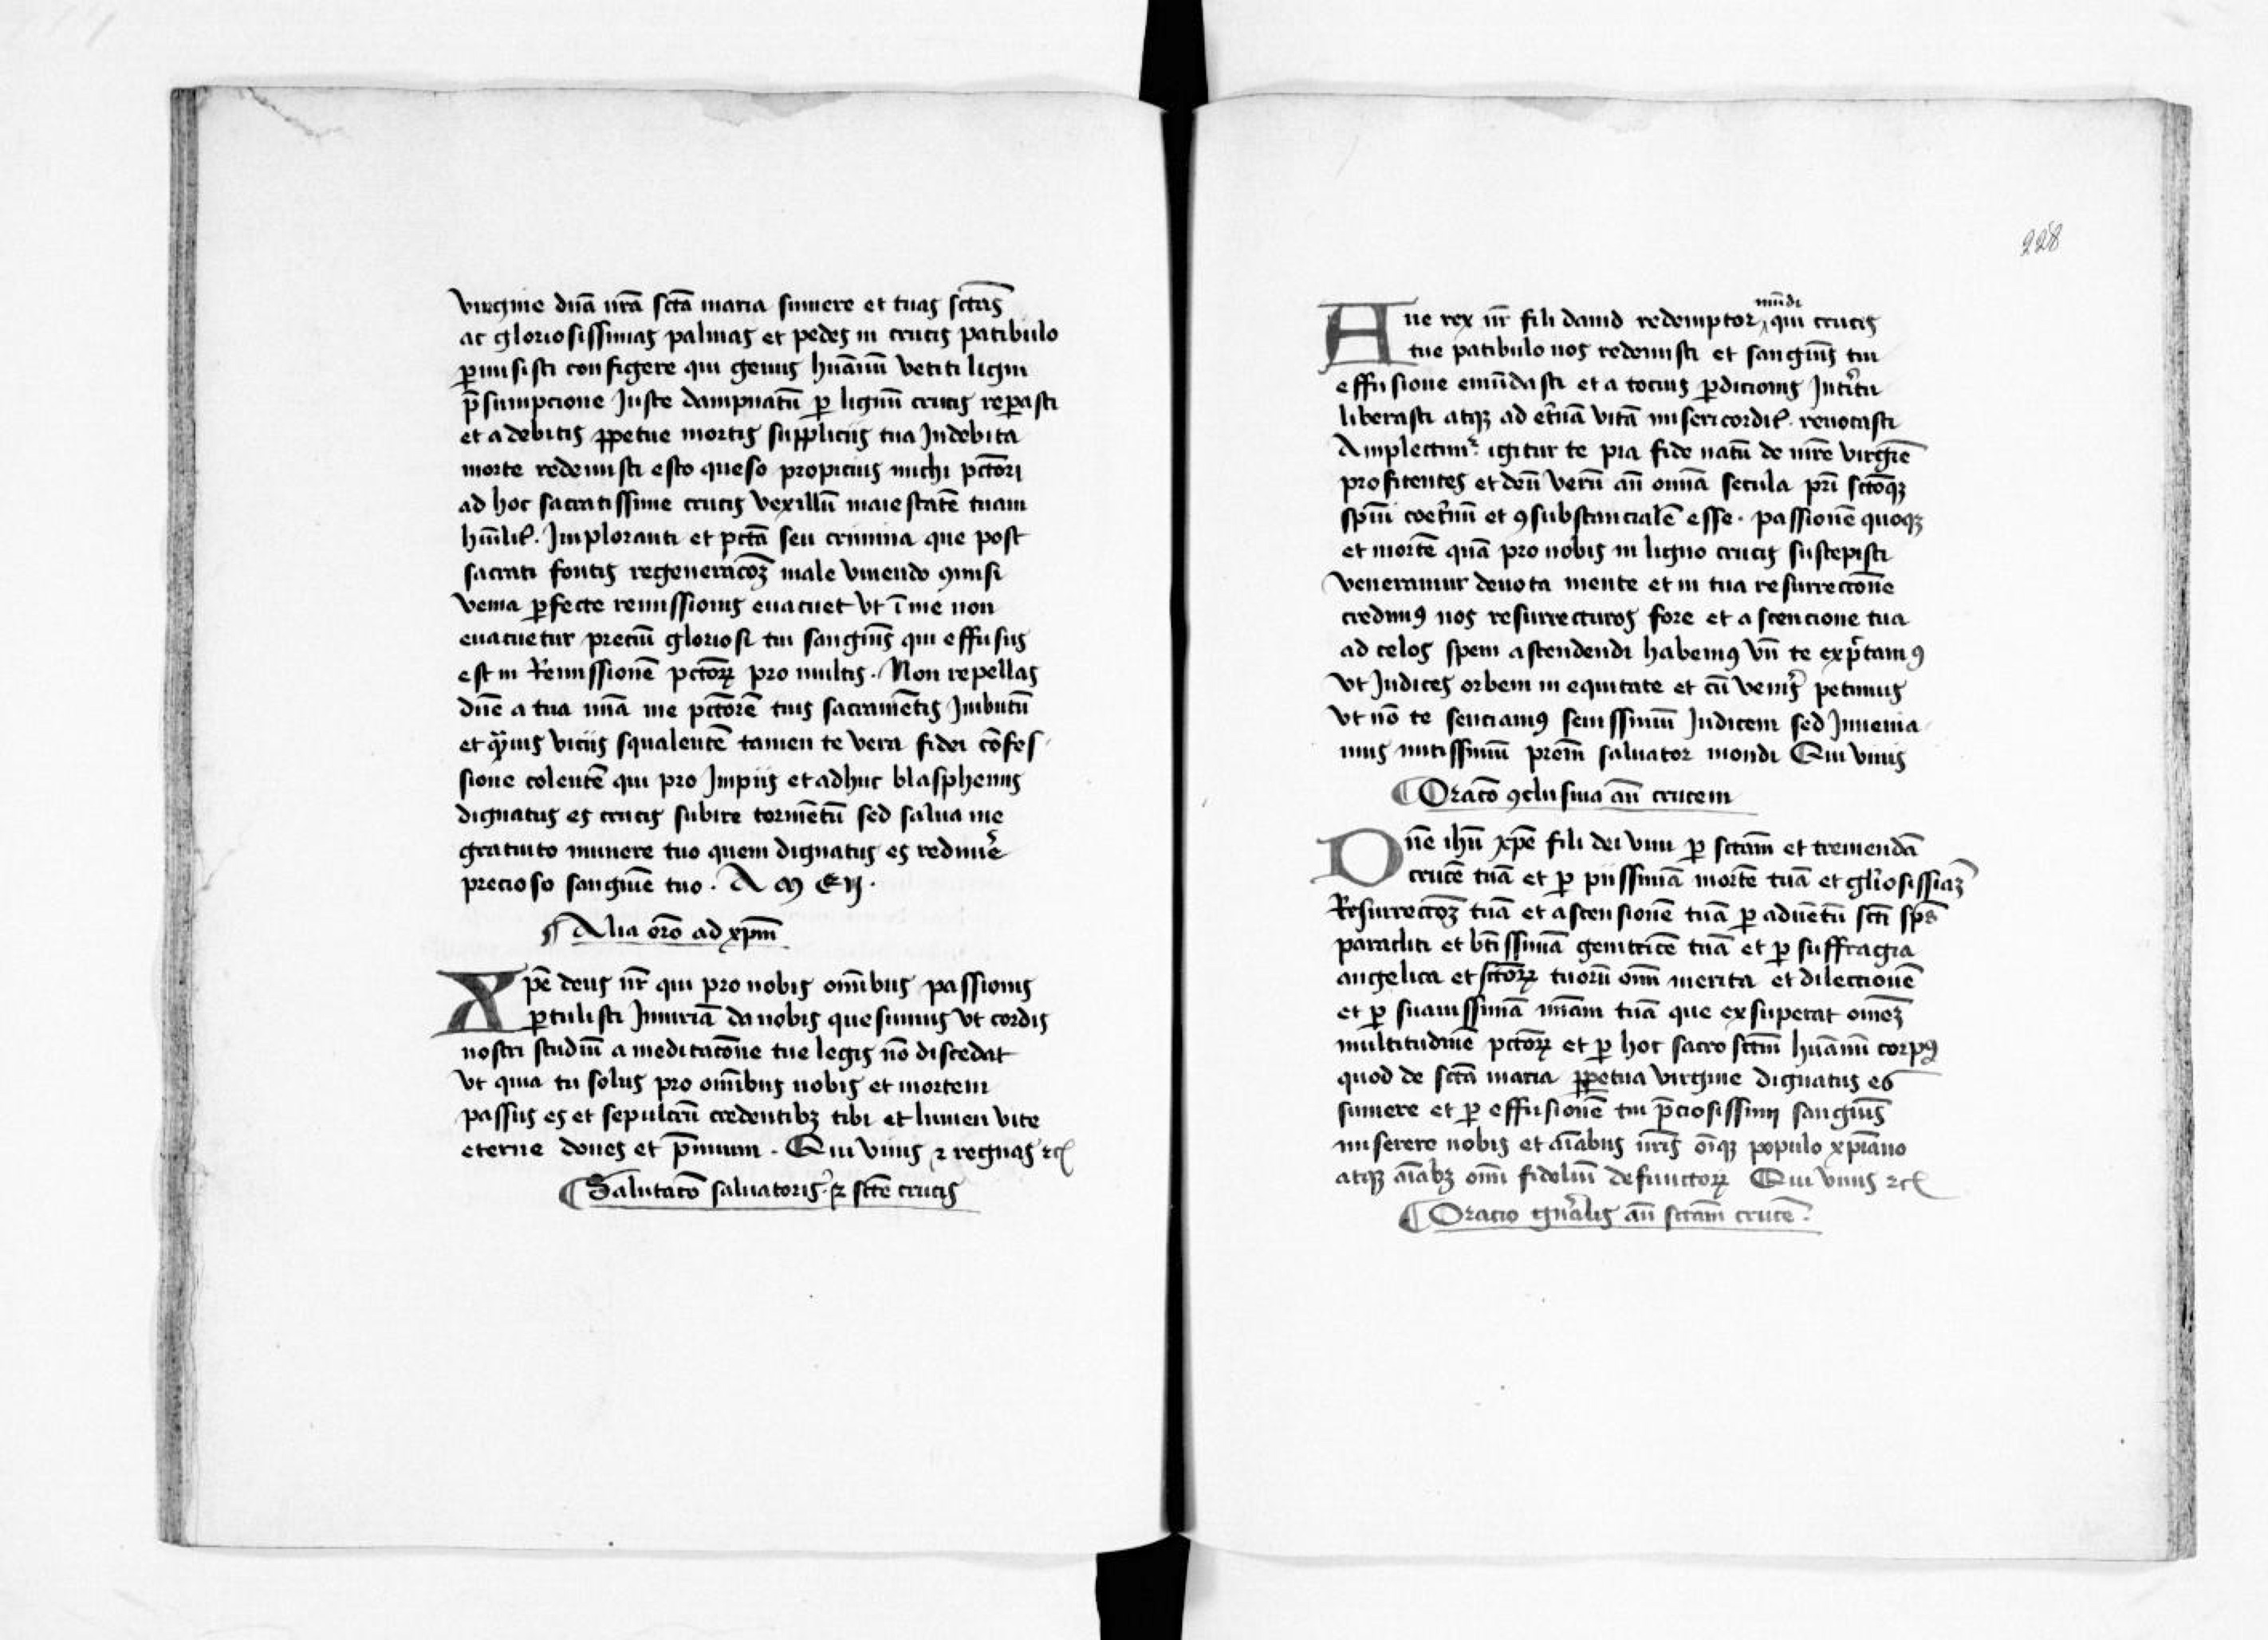 virgine dnā nrā sctā maria sumere et tuas sctas̄
ac gloriosissimas palmas et pedes in crucis patibulo
ꝑmisisti configere qui genus huānū vetiti ligni
p̄sumpcione Juste dampnatū ꝑ lignū crucis reparasti
et a debitis ꝑpetue mortis suppliciis tua Indebita
morte redemisti esto queso propicius michi pctōri
ad hoc sacratissime crucis vexillū maiestatē tuam
hūilit̛. Imploranti et pctā seu crimina que post
sacrati fontis regeneracōꝫ male viuendo ꝯmisi
venia ꝑfecte remissionis euacuet vt ī me non
euacuetur preciū gloriosi tui sanguīs qui effusus
est in Remissionē pctōꝝ pro multis. Non repellas
dnē a tua mīa me pctōrē tuis sacramētis Imbutū
et qͣmis viciis squalentē tamen te vera fidei cōfes-
sione colentē qui pro Impiis et adhuc blasphemis
dignatus es crucis subire tormētū sed salua me
gratuito munere tuo quem dignatus es redimē̛
precioso sanguīe tuo. AMEN.
¶ Alia orō ad xp̄m
Xpē deus nr̄ qui pro nobis omībus passionis
ꝑtulisti Iniuriā da nobis quesumus vt cordis
nostri studiū a meditacōne tue legis nō discedat
vt quia tu solus pro omībus nobis et mortem
passus es et sepulcrū credentibꝫ tibi et lumen vite
eterne dones et p̄mium. Qui viuis ⁊ regnas ⁊cͥ
¶ Salutacō saluatoris ⁊ sctē crucis
228
Aue rex nr̄ fili dauid redemptor ‸mūdi qui crucis
tue patibulo nos redemisti et sanguīs tui
effusione emūdasti et a tocius ꝑdicionis Int̛itu
liberasti atqꝫ ad et̛nā vitā misericordit̛. reuocasti
Amplectim̛ igitur te pia fide natū de mr̄e virgīe
profitentes et deū verū an̄ omīa secula pr̄i sctōqꝫ
spūi coet̛nū et ꝯsubstancialē esse. passionē quoqꝫ
et mortē quā pro nobis in ligno crucis suscepisti
veneramur deuota mente et in tua resurrectōne
credimꝰ nos resurrecturos fore et ascencione tua
ad celos spem ascendendi habemꝰ vn̄ te exp̄ctamꝰ
vt Iudices orbem in equitate et cū venis̛ petimus
vt nō te senciamꝰ seuissimū Iudicem sed Inuenia-
mus mitissimū prēm saluator mondi Qui viuis
¶ Oracō ꝯclusiua an̄ crucem
Dnē ihū xpē fili dei viui ꝑ sctām et tremendā
crucē tuā et ꝑ piissimā mortē tuā et glīosissiāꝫ
Resurrectōꝫ tuā et ascensionē tuā ꝑ aduētū sctī spūs
paracliti et btīssimā genitricē tuā et ꝑ suffragia
angelica et sctōꝝ tuorū omī merita et dilectionē
et ꝑ suauissimā mīam tuā que exsuperat omēꝫ
multitudinē pctōꝝ et ꝑ hoc sacrosctm̄ huānū corpꝰ
quod de sctā maria ꝑpetua virgine dignatus es
sumere et ꝑ effusionē tui p̄ciosissimi sanguīs
miserere nobis et aīabus nrīs oīqꝫ populo xpiāno
atqꝫ aīabꝫ omī fideliū defunctoꝝ Qui viuis ⁊cͥ
¶ Oracio gn̄alis an̄ sctām crucē.